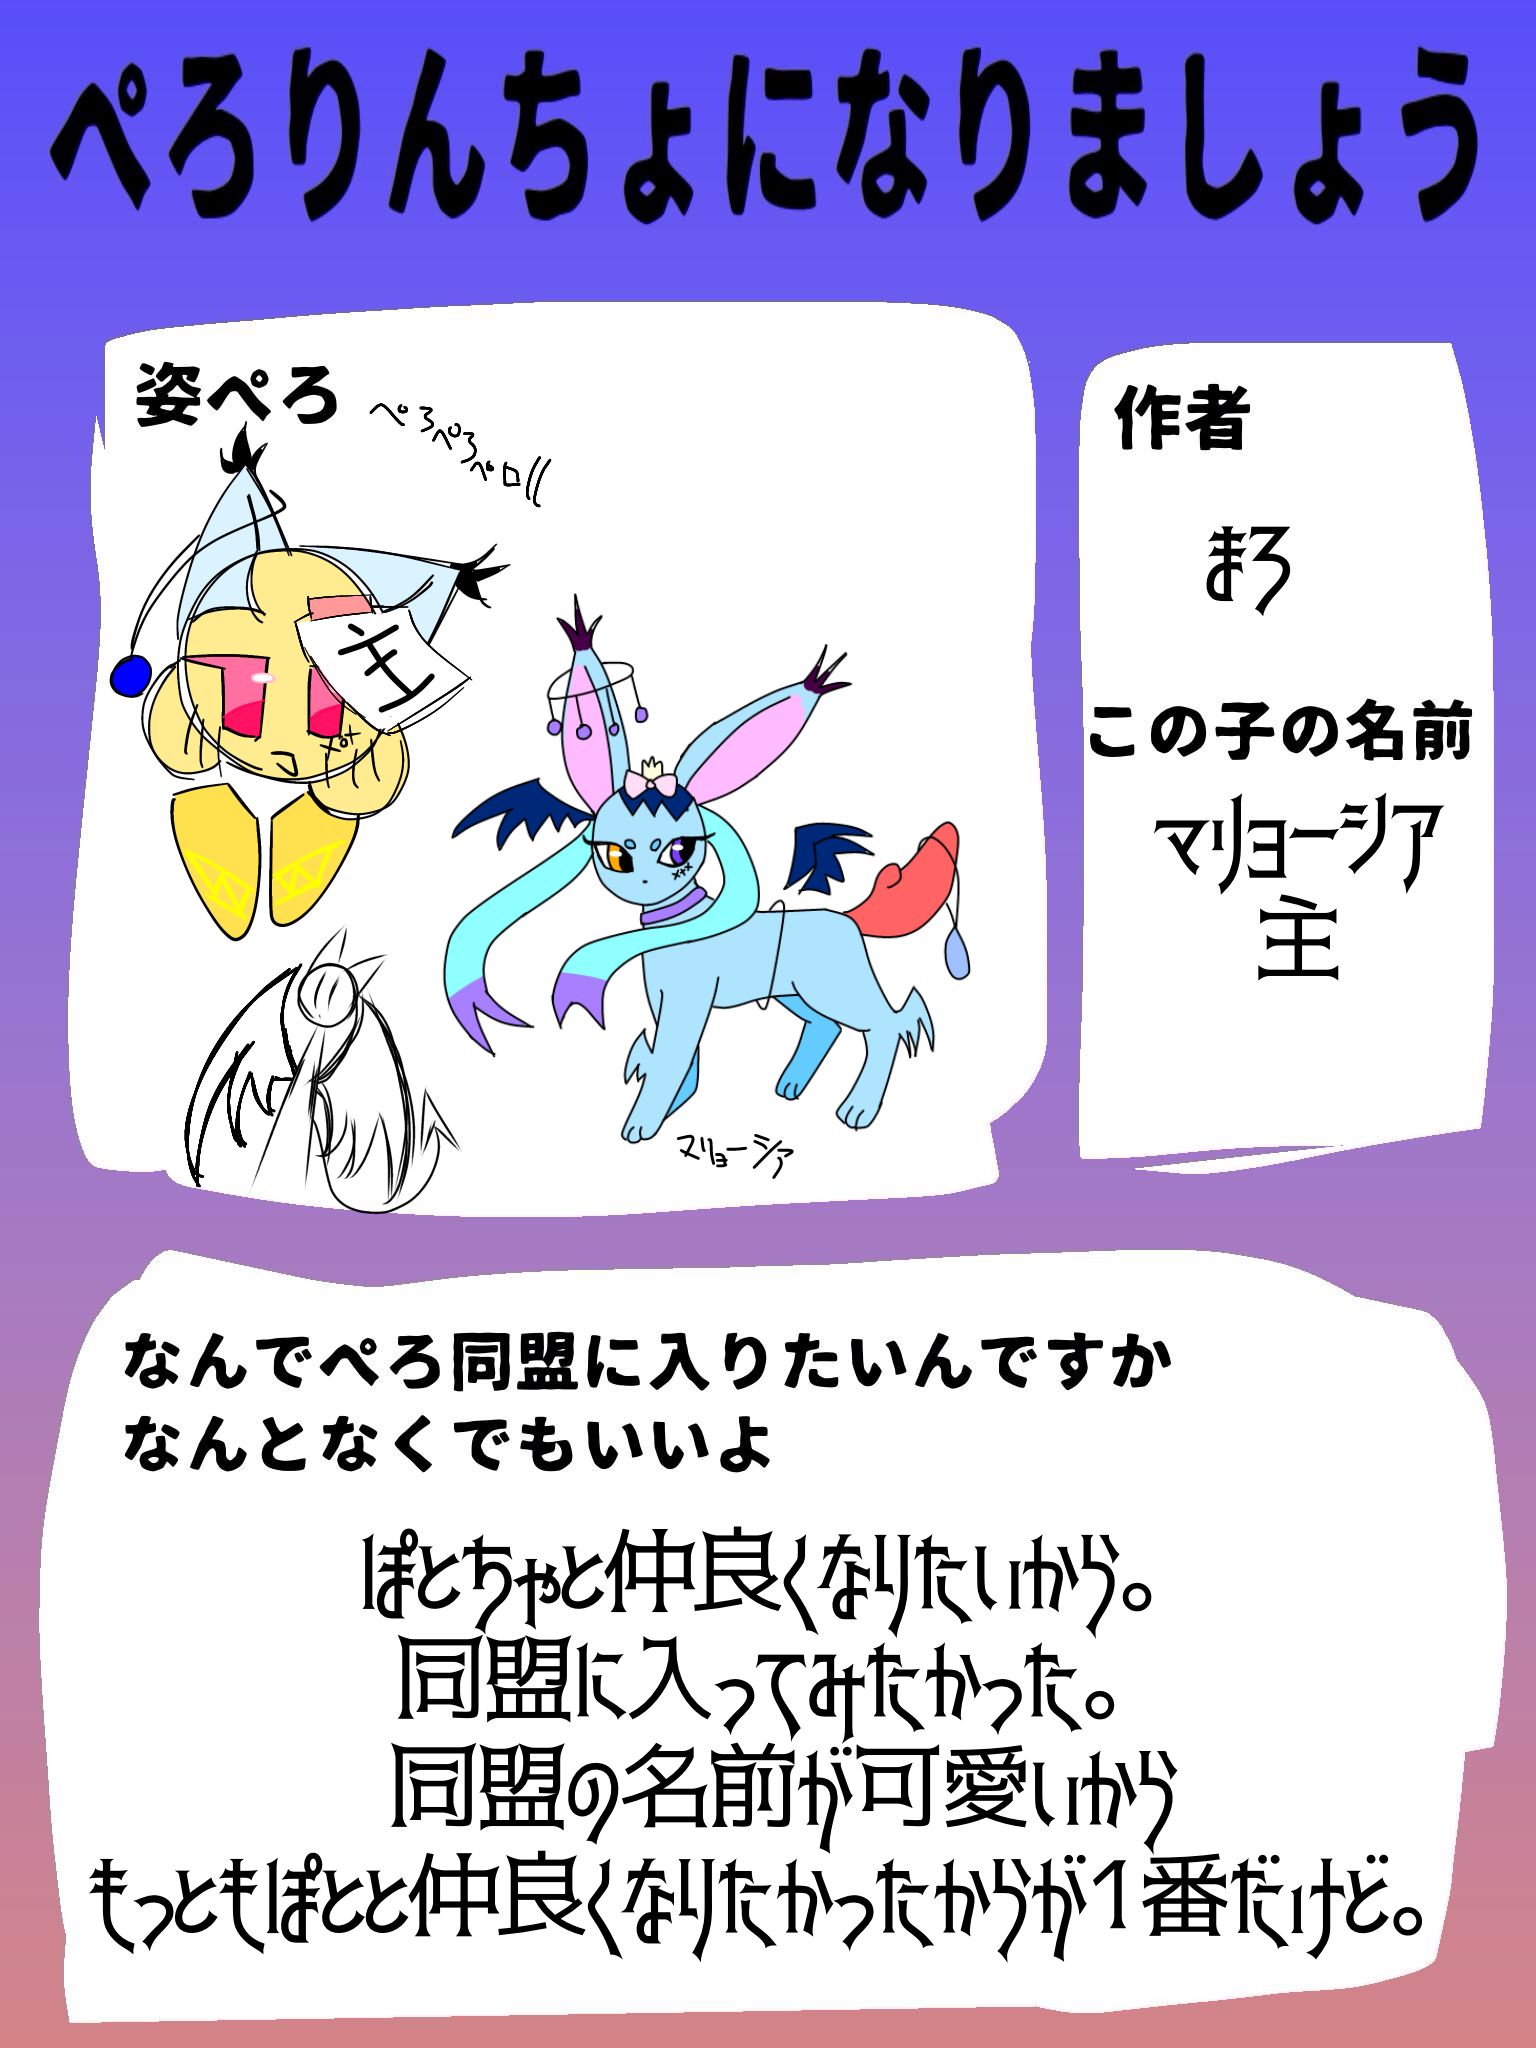 ぺろりんちょになりましょう
姿ぺろ
ぺろぺろペロ
主
マリョーシア
作者
まろ
この子の名前
マリョーシア
主
なんでぺろ同盟に入りたいんですか
なんとなくでもいいよ
ぽとちゃと仲良くなりたいから。
同盟に入ってみたかった。
同盟の名前が可愛いから
もっともぽとと仲良くなりたかったからが1番だけど。